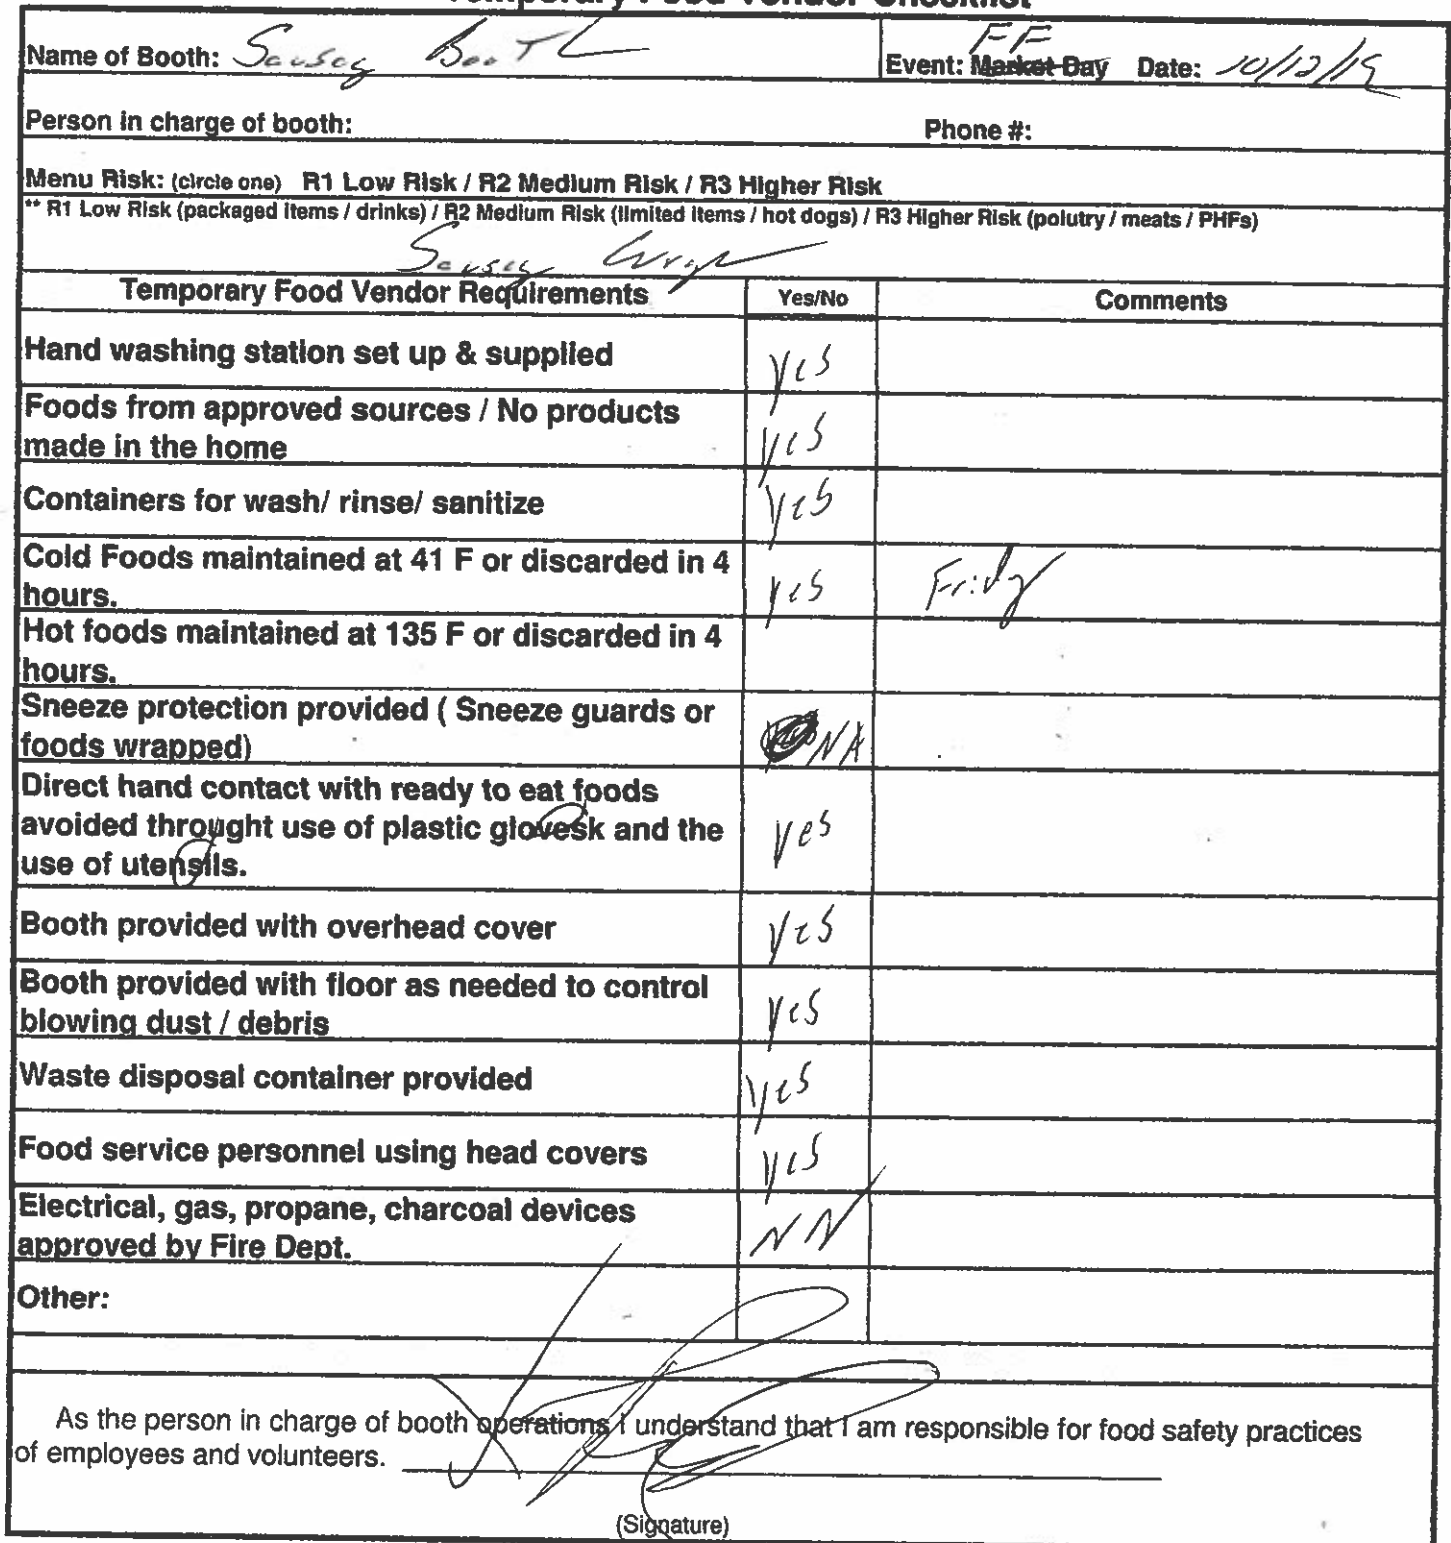 Temporary Food Vendor Checklist
Name of Booth: Sausag Booth Event: Market Day FF Date: 10/12/19
Person in charge of booth: Phone #:
Menu Risk: (circle one) R1 Low Risk / R2 Medium Risk / R3 Higher Risk
** R1 Low Risk (packaged items / drinks) / R2 Medium Risk (limited items / hot dogs) / R3 Higher Risk (polutry / meats / PHFs)
Sausag Wrap
Temporary Food Vendor Requirements Yes/No Comments
Hand washing station set up & supplied yes
Foods from approved sources / No products
made in the home yes
Containers for wash/ rinse/ sanitize yes
Cold Foods maintained at 41 F or discarded in 4
hours. yes Fridg
Hot foods maintained at 135 F or discarded in 4
hours.
Sneeze protection provided ( Sneeze guards or
foods wrapped) NA
Direct hand contact with ready to eat foods
avoided throught use of plastic glovesk and the
use of utensils. yes
Booth provided with overhead cover yes
Booth provided with floor as needed to control
blowing dust / debris yes
Waste disposal container provided yes
Food service personnel using head covers yes
Electrical, gas, propane, charcoal devices
approved by Fire Dept.
Other:
As the person in charge of booth operations I understand that I am responsible for food safety practices
of employees and volunteers.
(Signature)